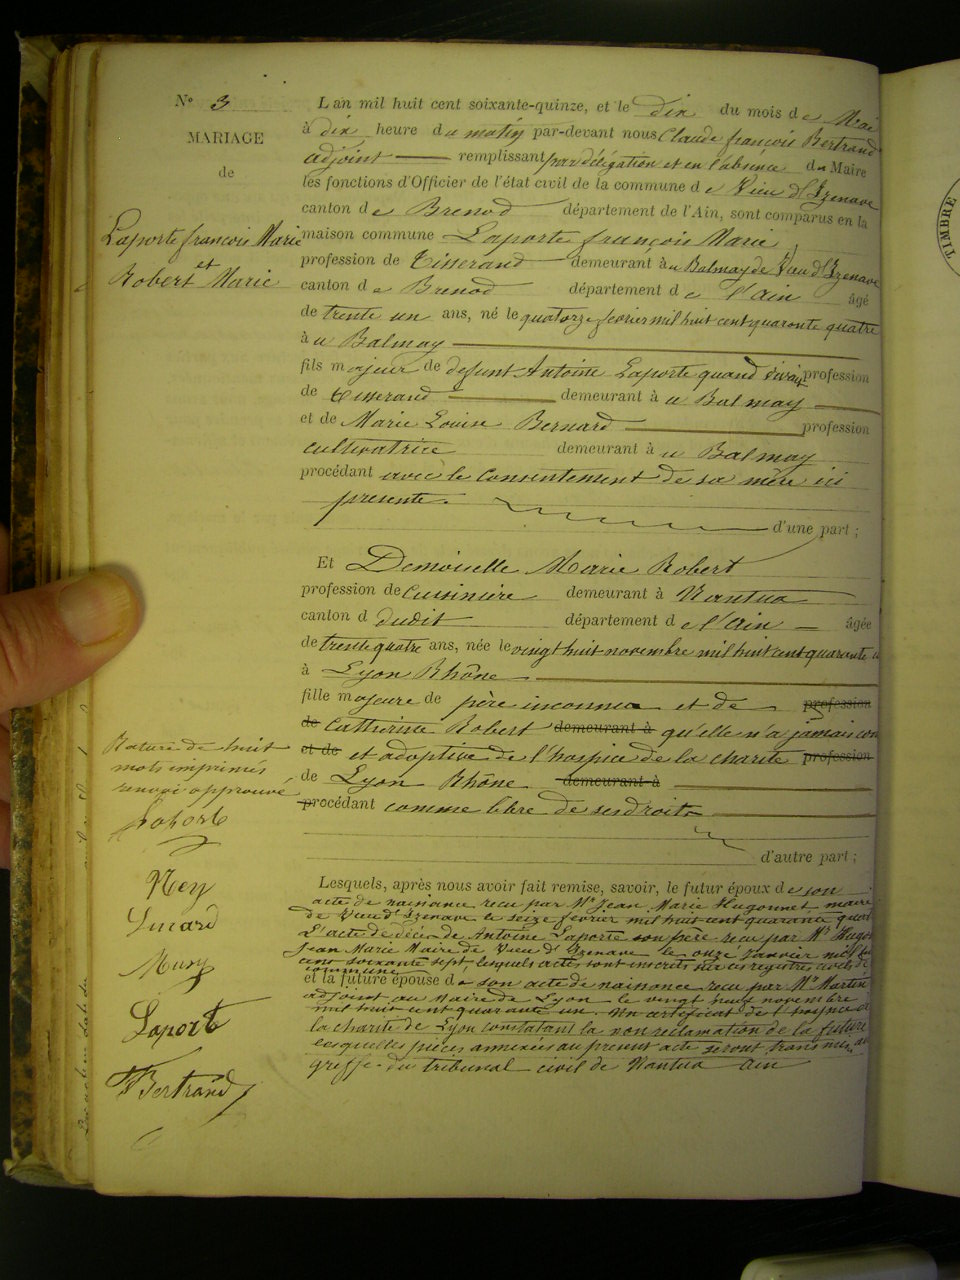 N° 3
MARIAGE
de
Laporte françois Marie
et
Robert Marie
L'an mil huit cent soixante-quinze, et le dix du mois de Mai
à dix heure du matin par-devant nous Claude françois Bertrand
adjoint remplissant par délégation et en l'absence du Maire
les fonctions d'Officier de l'état civil de la commune de Vieu d'Izenave
canton de Brenod département de l'Ain, sont comparus en la
maison commune Laporte françois Marie
profession de Tisserand demeurant à u Balmay de Vieu d'Izenave
canton de Brenod département de l'Ain âgé
de trente un ans, né le quatorze fevrier mil huit cent quarante quatre
à u Balmay
fils majeur de defunt Antoine Laporte quand vivait profession
de tisserand demeurant à u Balmay
et de Marie Louise Bernard profession
cultivatrice demeurant à u Balmay
procédant avec le consentement de sa mère ici
presente. d'une part ;
Et Demoiselle Marie Robert
profession de Cuisinière demeurant à Nantua
canton d dudit département de l'Ain âgée
de trente quatre ans, née le vingt huit novembre mil huit cent quarante u
à Lyon Rhône
fille majeure de père inconnu et de profession
de Catherine Robert demeurant à qu'elle n'a jamais con
et de et adoptive de l'hospice de la charité profession
de Lyon Rhône demeurant à
procédant comme libre de ses droits
d'autre part ;
Rature de huit
mots imprimés
renvoi approuvé
Laporte
Ney
Mury
Laporte
Bertrand
Lesquels, après nous avoir fait remise, savoir, le futur époux de son
acte de naissance recu par Mr Jean Marie Hugonnet maire
de Vieu d'Izenave le seize fevrier mil huit cent quarante quatre
L'acte de décès de Antoine Laporte son père recu par Mr Hugon
Jean Marie Maire de Vieu d'Izenave le onze janvier mil hui
cent soixante sept, lesquels actes sont inscrits sur ces registres civils de
commune
et la future épouse de son acte de naissance recu par Mr Martin
adjoint au Maire de Lyon le vingt neuf novembre
mil huit cent quarante un. Un certificat de l'hospice de
la charité de Lyon constatant la non reclamation de la future
lesquelles pièces annexées au present acte seront transmises au
greffe du tribunal civil de Nantua Ain
TIMBRE